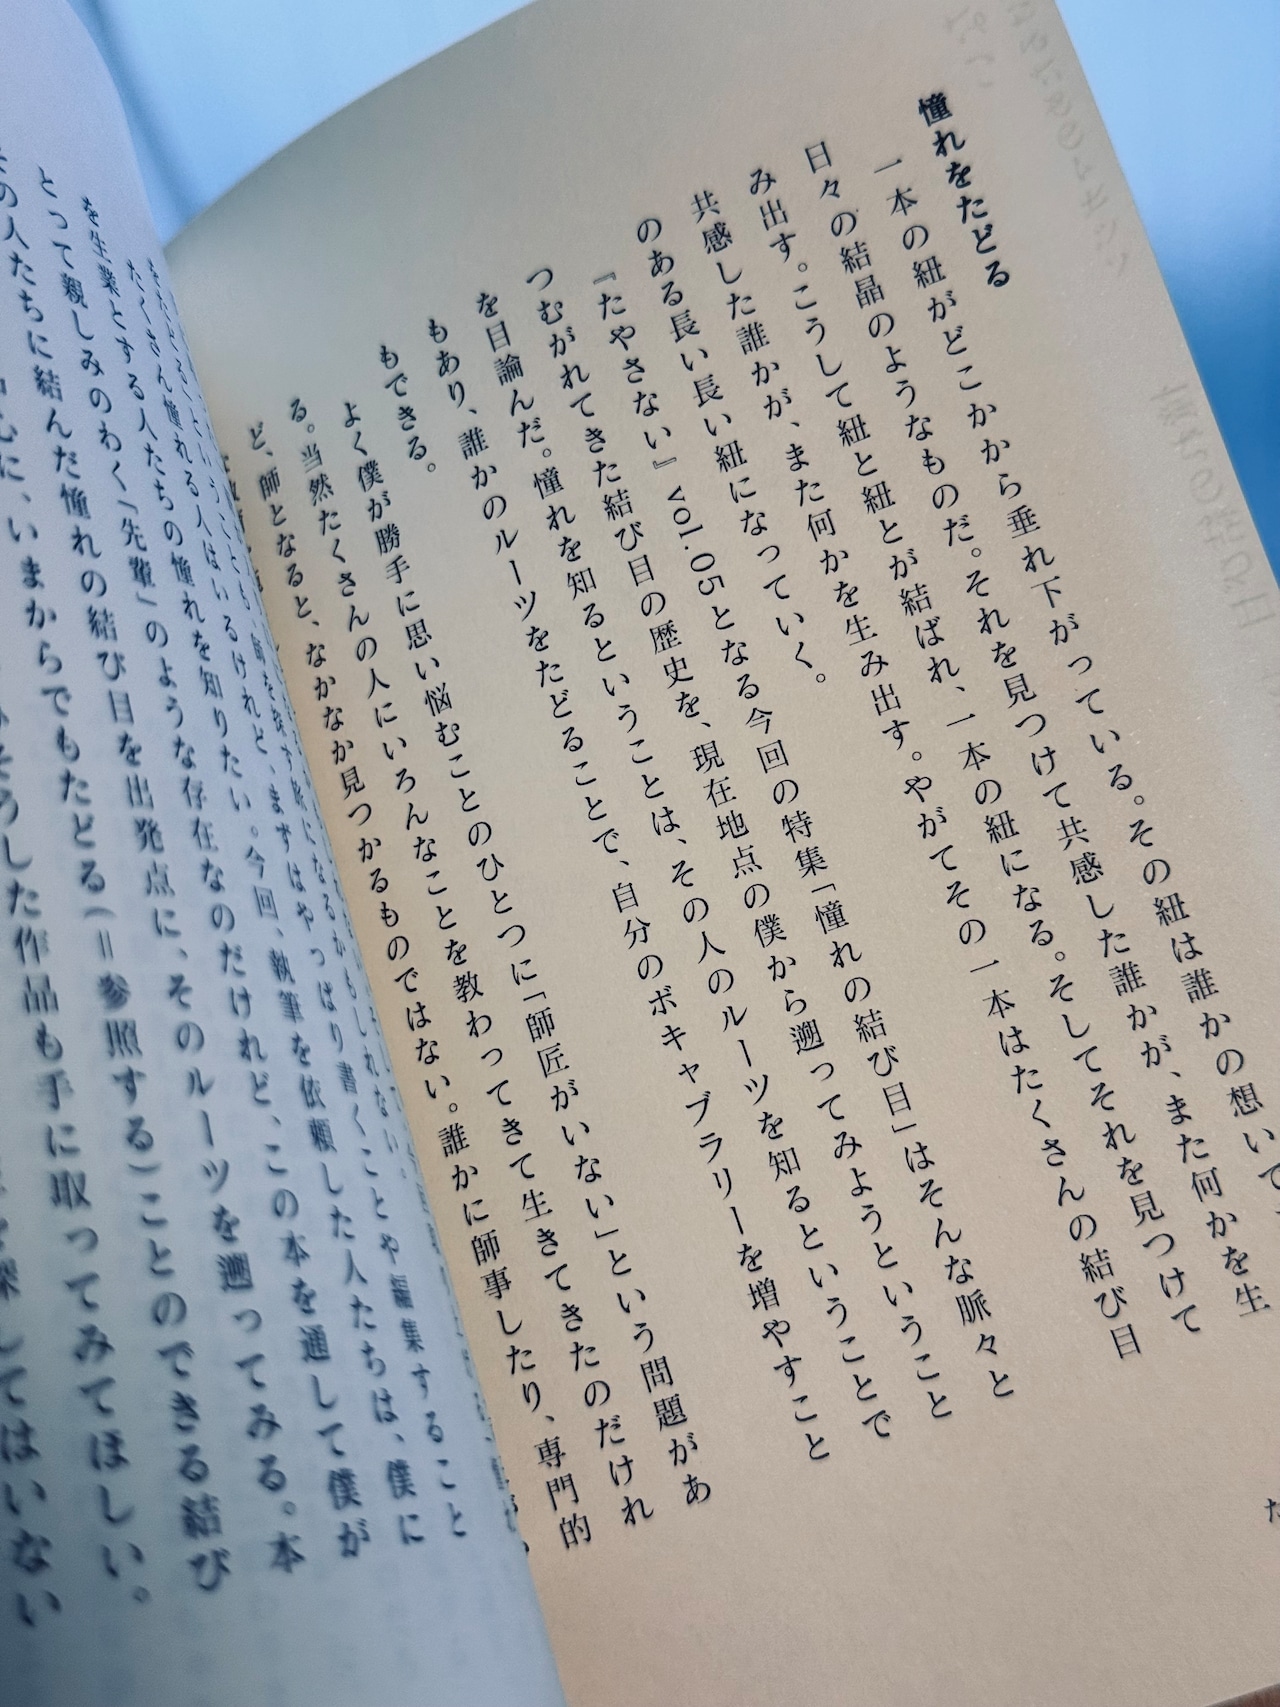 憧れをたどる
一本の紐がどこかから垂れ下がっている。その紐は誰かの想いで
日々の結晶のようなものだ。それを見つけて共感した誰かが、また何かを生
み出す。こうして紐と紐とが結ばれ、一本の紐になる。そしてそれを見つけて
共感した誰かが、また何かを生み出す。やがてその一本はたくさんの結び目
のある長い長い紐になっていく。
『たやさない』vol.05となる今回の特集「憧れの結び目」はそんな脈々と
つむがれてきた結び目の歴史を、現在地点の僕から遡ってみようということ
を目論んだ。憧れを知るということは、その人のルーツを知るということで
もあり、誰かのルーツをたどることで、自分のボキャブラリーを増やすこと
もできる。
よく僕が勝手に思い悩むことのひとつに「師匠がいない」という問題があ
る。当然たくさんの人にいろんなことを教わってきて生きてきたのだけれ
ど、師となると、なかなか見つかるものではない。誰かに師事したり、専門的
たくさん憧れる人はいるけれど、まずはやっぱり書くことや編集すること
を生業とする人たちの憧れを知りたい。今回、執筆を依頼した人たちは、僕に
とって親しみのわく「先輩」のような存在なのだけれど、この本を通して僕が
の人たちに結んだ憧れの結び目を出発点に、そのルーツを遡ってみる。本
に、いまからでもたどる（＝参照する）ことのできる結び
した作品も手に取ってみてほしい。
してはいない